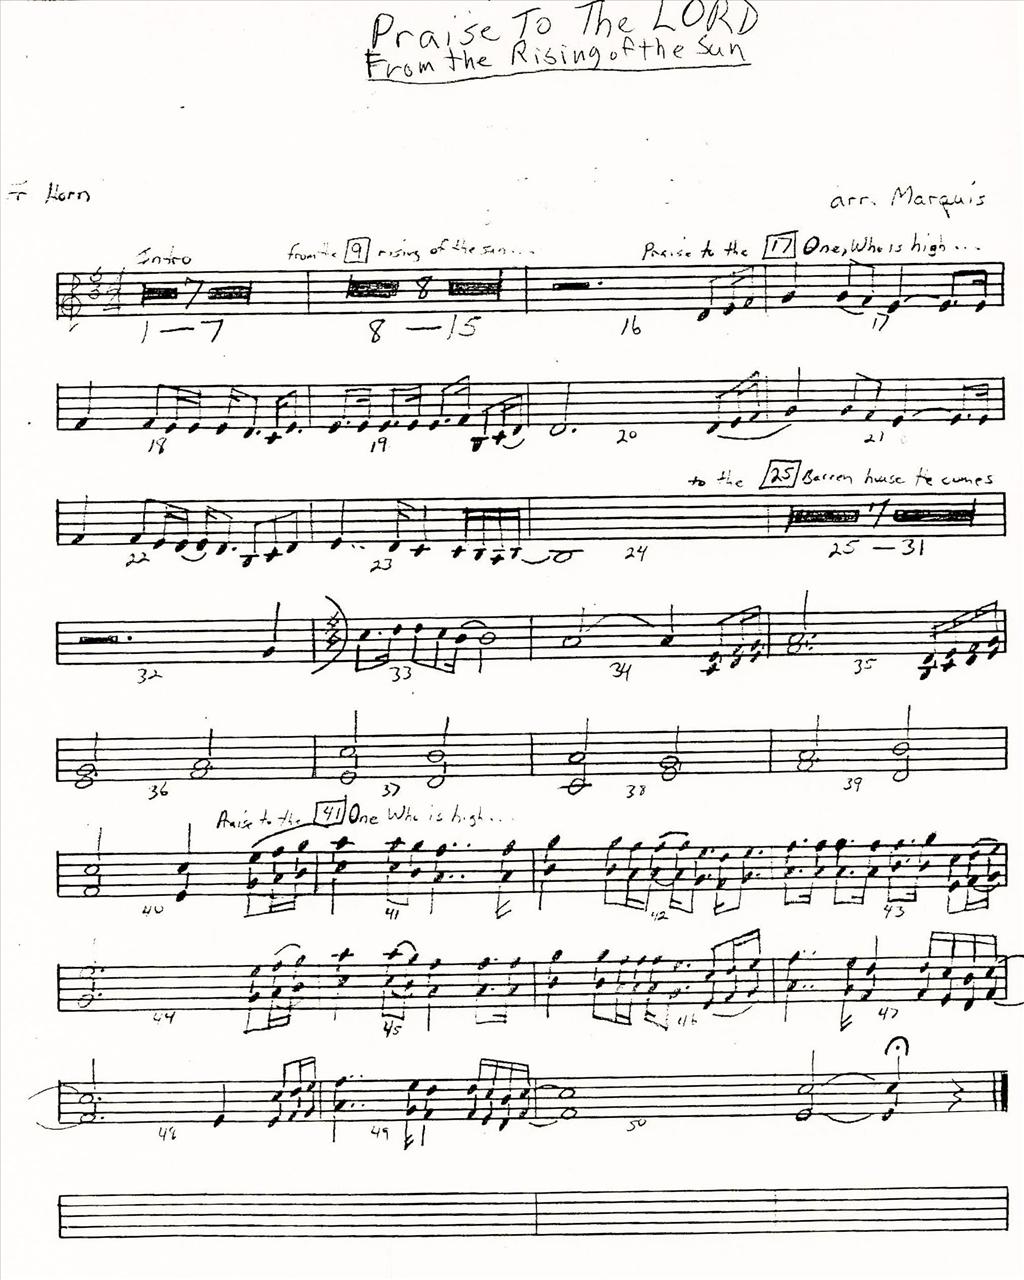 Praise To The LORD
From the Rising of the Sun
F Horn
arr. Marquis
Intro from the 9 rising of the sun... Praise to the 17 One, Who is high...
7 8
1 — 7 8 — 15 16 17
18 19 20 21
to the 25 Barren house He comes
7
22 23 24 25 — 31
32 33 34 35
36 37 38 39
Praise to the 41 One Who is high...
40 41 42 43
44 45 46 47
48 49 50